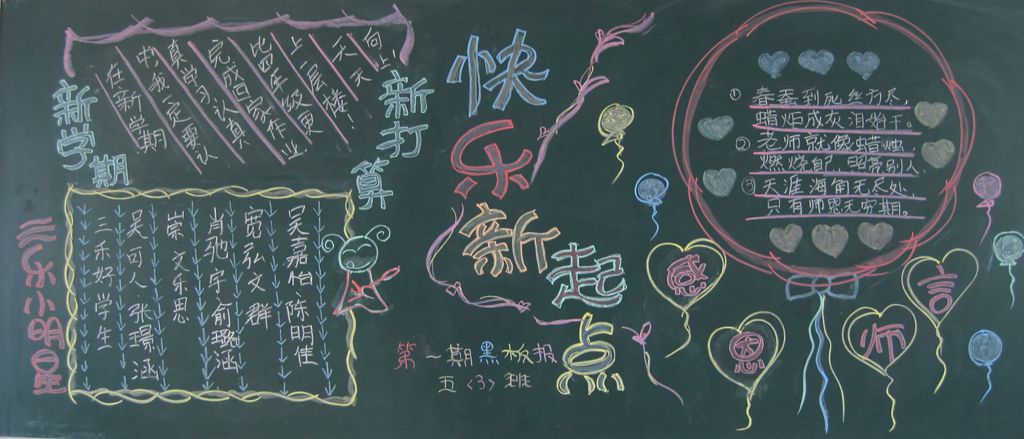 新学期
新打算
在新学期
中，我一定要认
真学习，认真
完成回家作业
比四年级更
上一层楼！
天天
向上
三乐小明星
三禾好学生
吴可人 张璟涵
崇文乐思
肖驰宇 俞璐涵
宽弘文群
吴嘉怡 陈明佳
快乐新起点
第一期黑板报
五〈3〉班
① 春蚕到死丝方尽，
蜡炬成灰泪始干。
② 老师就像蜡烛
燃烧自己 照亮别人
③ 天涯海角无尽处，
只有师恩无穷期。
感恩师言